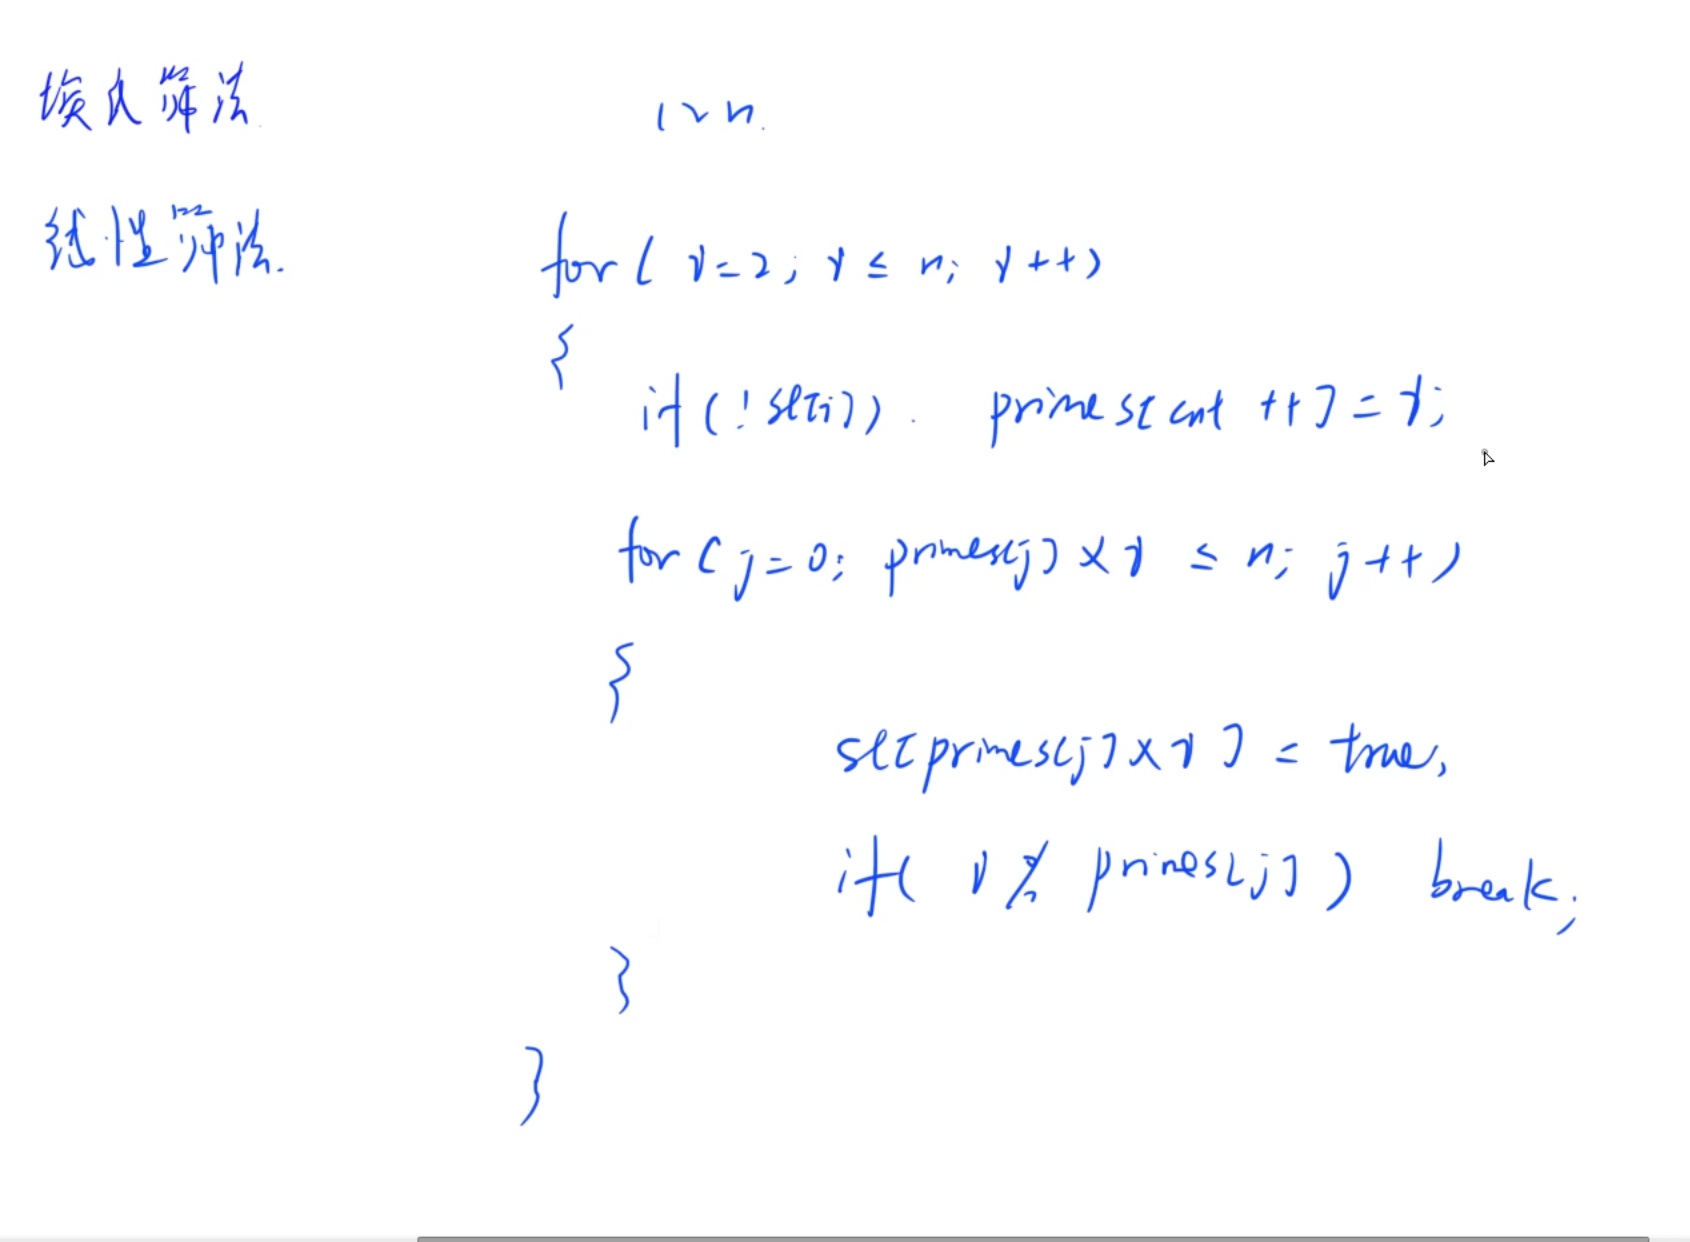 埃氏筛法
1~n.
线性筛法.
for( i=2; i ≤ n; i++)
{
if(!st[i]). primes[cnt ++] = i;
for(j=0; primes[j] × i ≤ n; j++)
{
st[primes[j] × i] = true,
if( i % primes[j]) break;
}
}